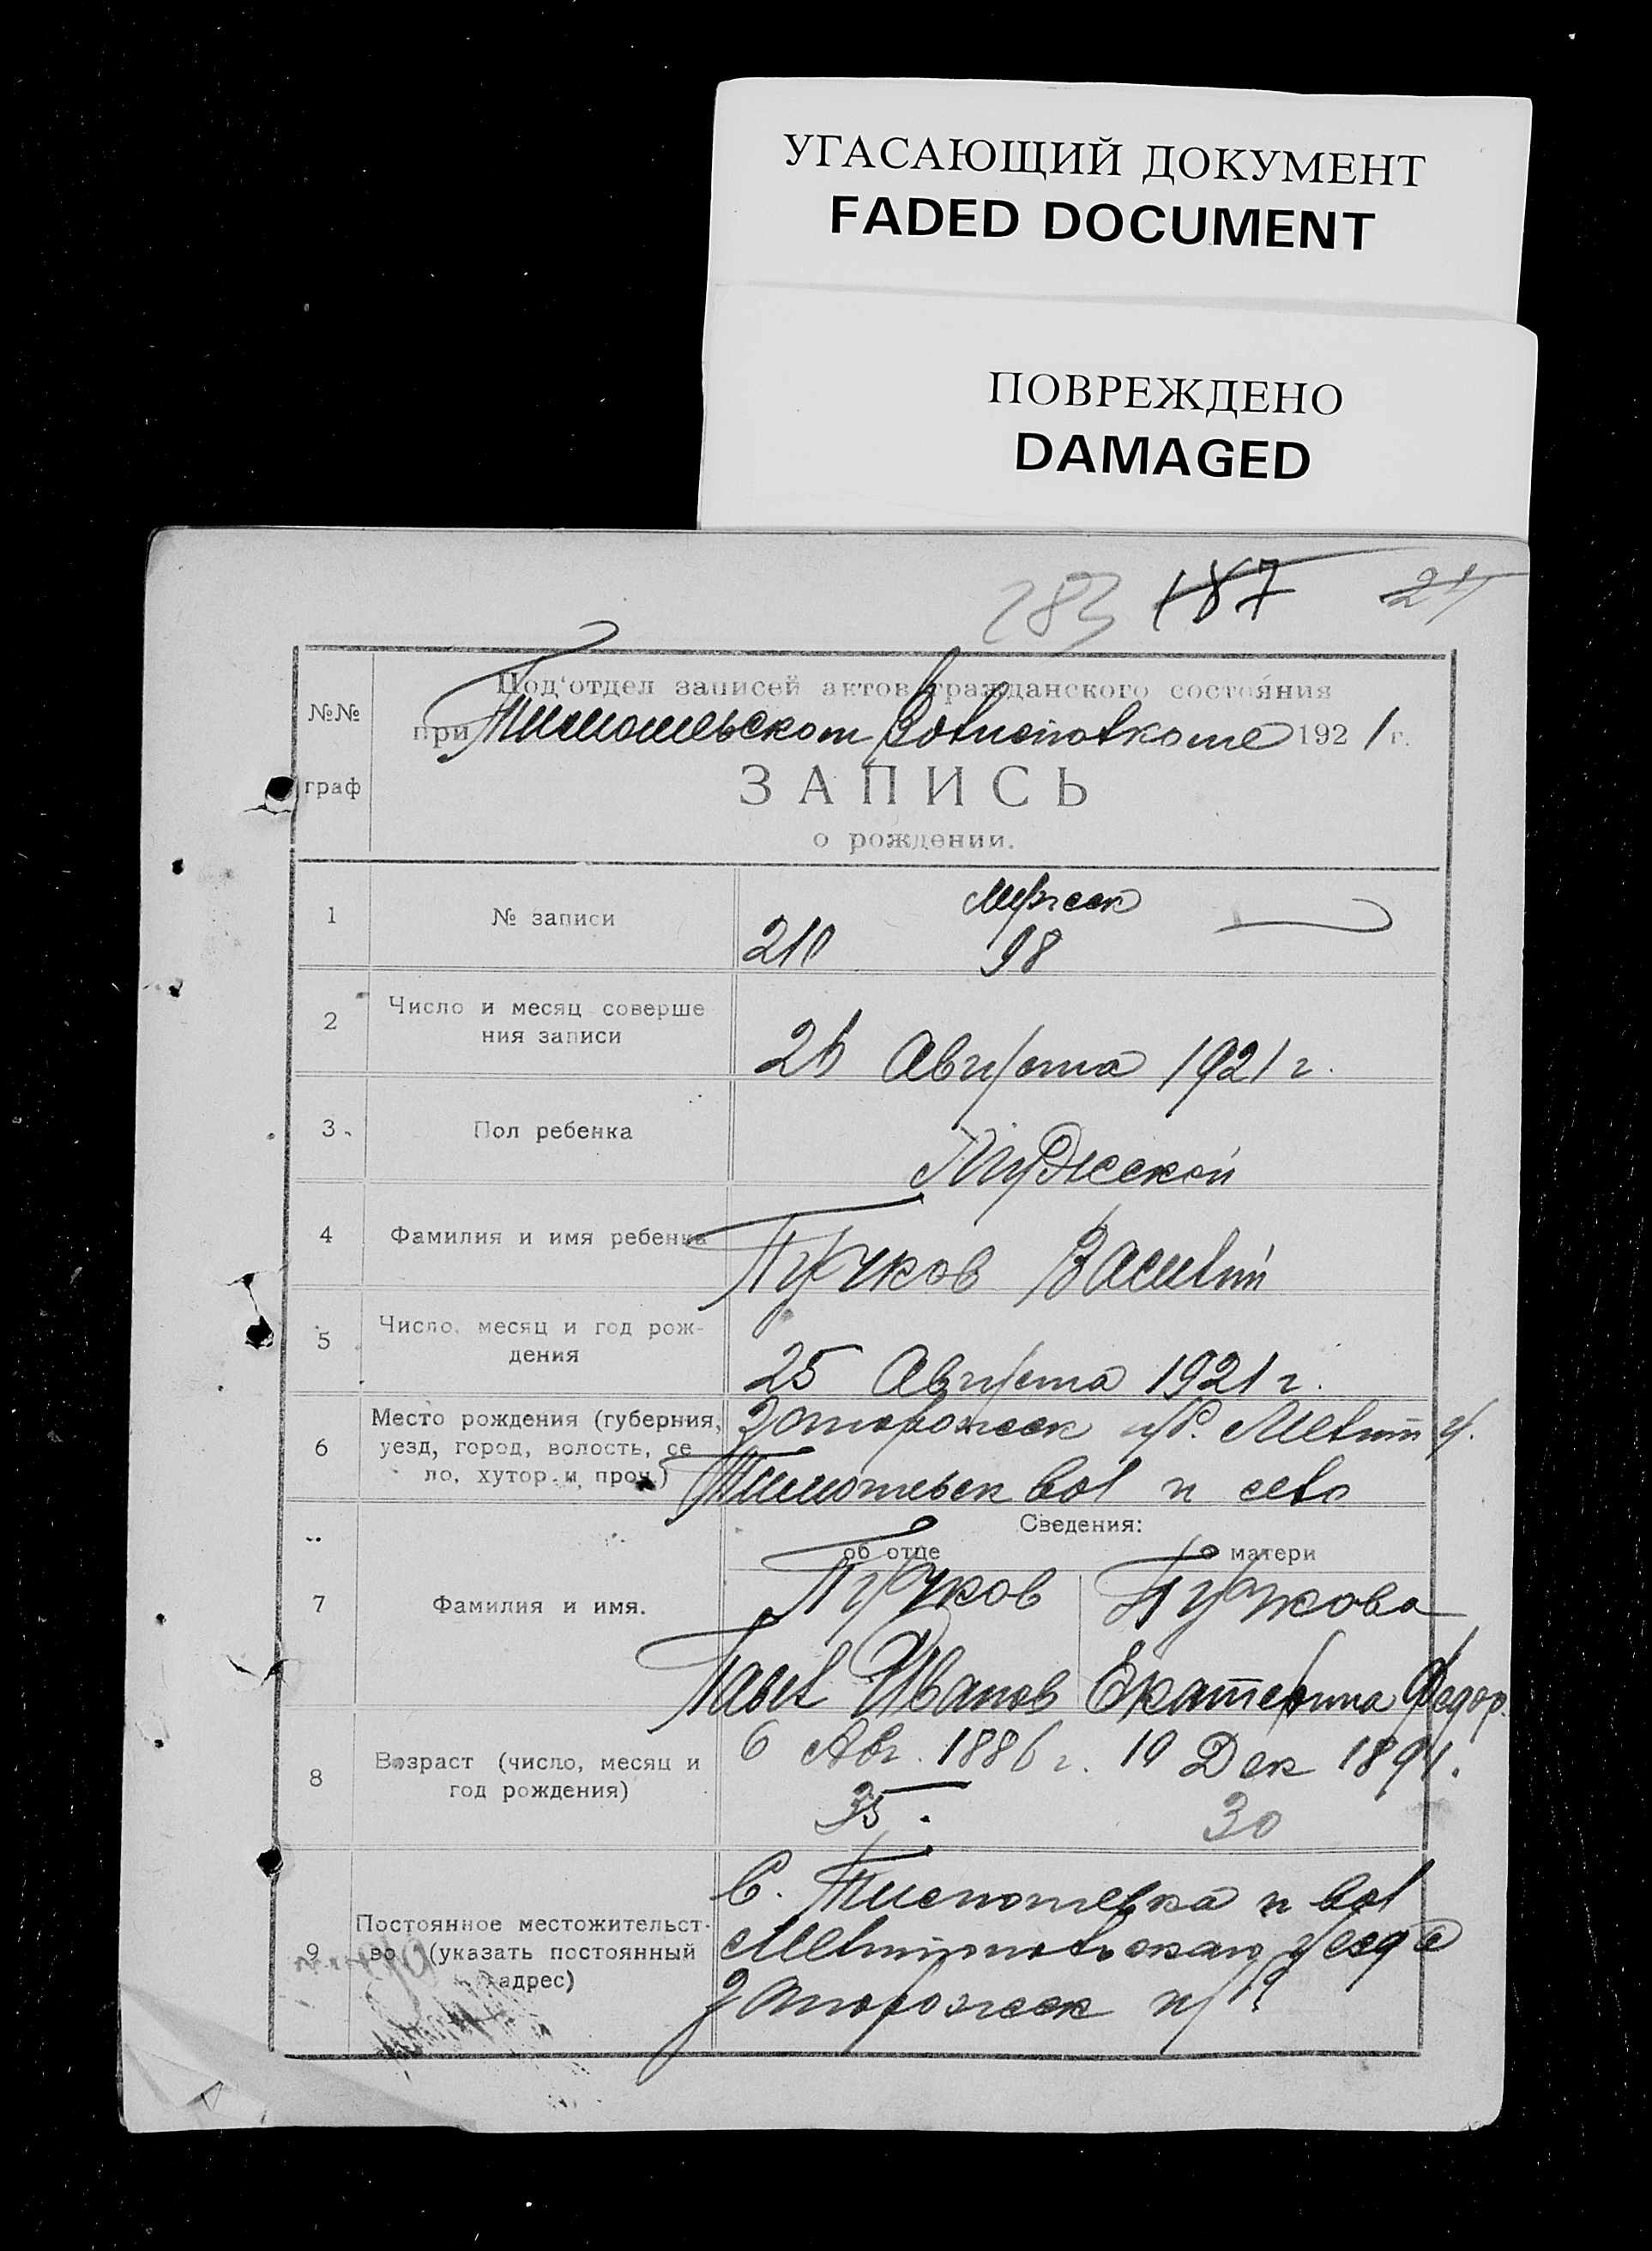 УГАСАЮЩИЙ ДОКУМЕНТ
FADED DOCUMENT
ПОВРЕЖДЕНО
DAMAGED
283 187 24
Под‘отдел записей актов гражданского состояния
при Тимошевском Волисполкоме 1921 г.
№№
граф
ЗАПИСЬ
о рождении.
1 № записи
Мужск
210 98
2 Число и месяц соверше
ния записи
26 Августа 1921 г.
3 Пол ребенка
Мужской
4 Фамилия и имя ребенка
Пучков Василий
5 Число, месяц и год рож-
дения
25 Августа 1921 г.
6 Место рождения (губерния,
уезд, город, волость, се
ло, хутор и проч.)
Запорожск г. Мелит у.
вол и село
Сведения:
об отце о матери
7 Фамилия и имя.
Пучков Пучкова
Павел Иванов Екатерина Федор.
8 Возраст (число, месяц и
год рождения)
6 Авг. 1886 г. 10 Дек 1891.
35. 30
9 Постоянное местожительст-
во (указать постоянный
адрес)
С. Тимошевка и вол
Мелитопольскаго уезда
Запорожск